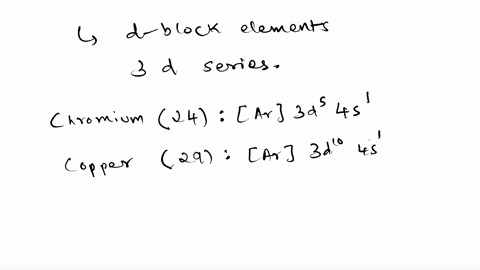 ↳ d-block elements
3 d series.
Chromium (24) : [Ar] 3d⁵ 4s¹
Copper (29) : [Ar] 3d¹⁰ 4s¹